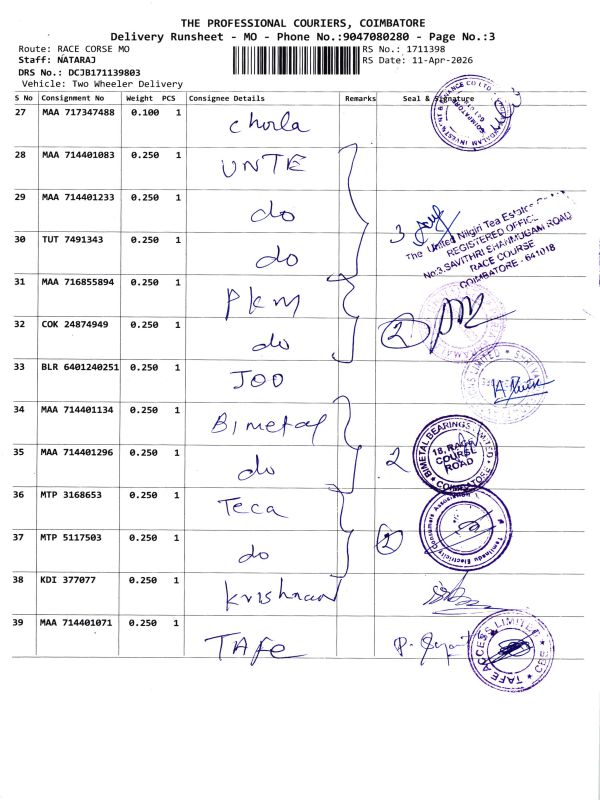 THE PROFESSIONAL COURIERS, COIMBATORE
Delivery Runsheet - MO - Phone No.:9047080280 - Page No.:3
Route: RACE CORSE MO
RS No.: 1711398
Staff: NATARAJ
RS Date: 11-Apr-2026
DRS No.: DCJB171139803
Vehicle: Two Wheeler Delivery
S No Consignment No Weight PCS Consignee Details Remarks Seal & Signature
27 MAA 717347488 0.100 1 chola
28 MAA 714401083 0.250 1 UNTE
29 MAA 714401233 0.250 1 do
3
The United Nilgiri Tea Estates
REGISTERED OFFICE
No:3, SAVITHRI SHANMUGAM ROAD
RACE COURSE
COIMBATORE - 641018
30 TUT 7491343 0.250 1 do
31 MAA 716855894 0.250 1 PKM
32 COK 24874949 0.250 1 do 2
33 BLR 6401240251 0.250 1 JOO
34 MAA 714401134 0.250 1 Bimetal
35 MAA 714401296 0.250 1 do 2
BIMETAL BEARINGS LIMITED
18, RACE
COURSE
ROAD
COIMBATORE
36 MTP 3168653 0.250 1 Teca
37 MTP 5117503 0.250 1 do 2
Tamilnadu Electricity Consumers Association
38 KDI 377077 0.250 1 Krishnan
39 MAA 714401071 0.250 1 TAFE
TAFE ACCESS LIMITED
CBE